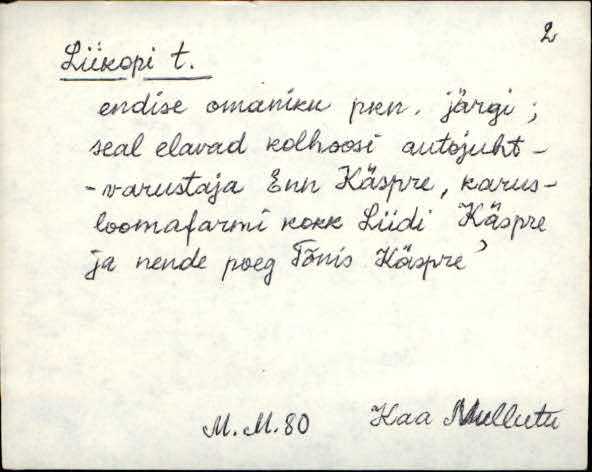 2
Liikopi t.
endise omaniku pkn. järgi;
seal elavad kolhoosi autojuht-
-varustaja Enn Käspre, karus-
loomafarmi kokk Liidi Käspre
ja nende poeg Tõnis Käspre
M.M.80 Kaa Mullutu